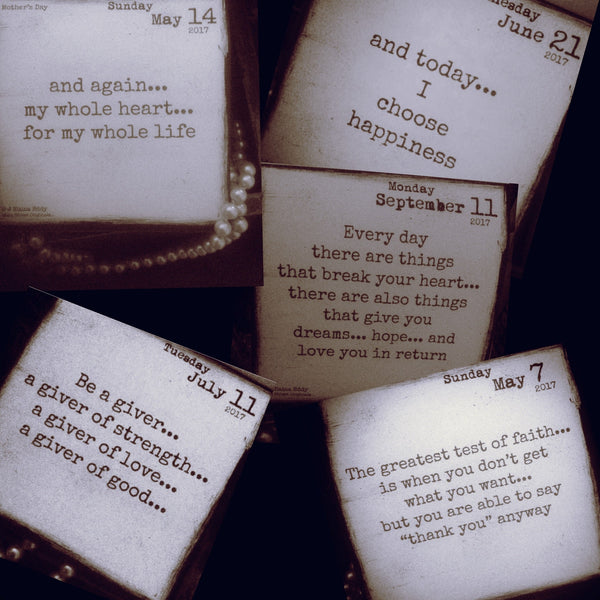 Mother's Day
Sunday
May 14
2017
and again...
my whole heart...
for my whole life
Main Street Originals
nesday
June 21
2017
and today...
I
choose
happiness
Monday
September 11
2017
Every day
there are things
that break your heart...
there are also things
that give you
dreams... hope... and
love you in return
Tuesday
July 11
2017
Be a giver...
a giver of strength...
a giver of love...
a giver of good...
Sunday
May 7
2017
The greatest test of faith...
is when you don't get
what you want...
but you are able to say
"thank you" anyway